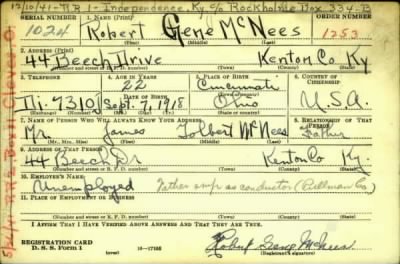 12/10/41-R R 1-Independence, Ky. c/o Rockholme Box 334-B
SERIAL NUMBER 1. NAME (Print) ORDER NUMBER
1024 Robert Gene McNees 1253
(First) (Middle) (Last)
2. ADDRESS (Print)
44 Beech Drive Kenton Co Ky
(Number and street or R. F. D. number) (Town) (County) (State)
3. TELEPHONE 4. AGE IN YEARS 5. PLACE OF BIRTH 6. COUNTRY OF CITIZENSHIP
22 Cincinnati
DATE OF BIRTH
Di. 7310J Sept. 7, 1918 Ohio U.S.A.
(Exchange) (Number) (Mo.) (Day) (Yr.) (State or country)
7. NAME OF PERSON WHO WILL ALWAYS KNOW YOUR ADDRESS 8. RELATIONSHIP OF THAT PERSON
Mr. James Tolbert McNees Father
(Mr., Mrs., Miss) (First) (Middle) (Last)
9. ADDRESS OF THAT PERSON
44 Beech Dr Kenton Co Ky.
(Number and street or R. F. D. number) (Town) (County) (State)
10. EMPLOYER'S NAME
Unemployed Father emp as conductor (Pullman Co)
11. PLACE OF EMPLOYMENT OR BUSINESS
(Number and street or R. F. D. number) (Town) (County) (State)
I AFFIRM THAT I HAVE VERIFIED ABOVE ANSWERS AND THAT THEY ARE TRUE.
REGISTRATION CARD
D. S. S. Form 1 16-17105 Robert Gene McNees
(Registrant's signature)